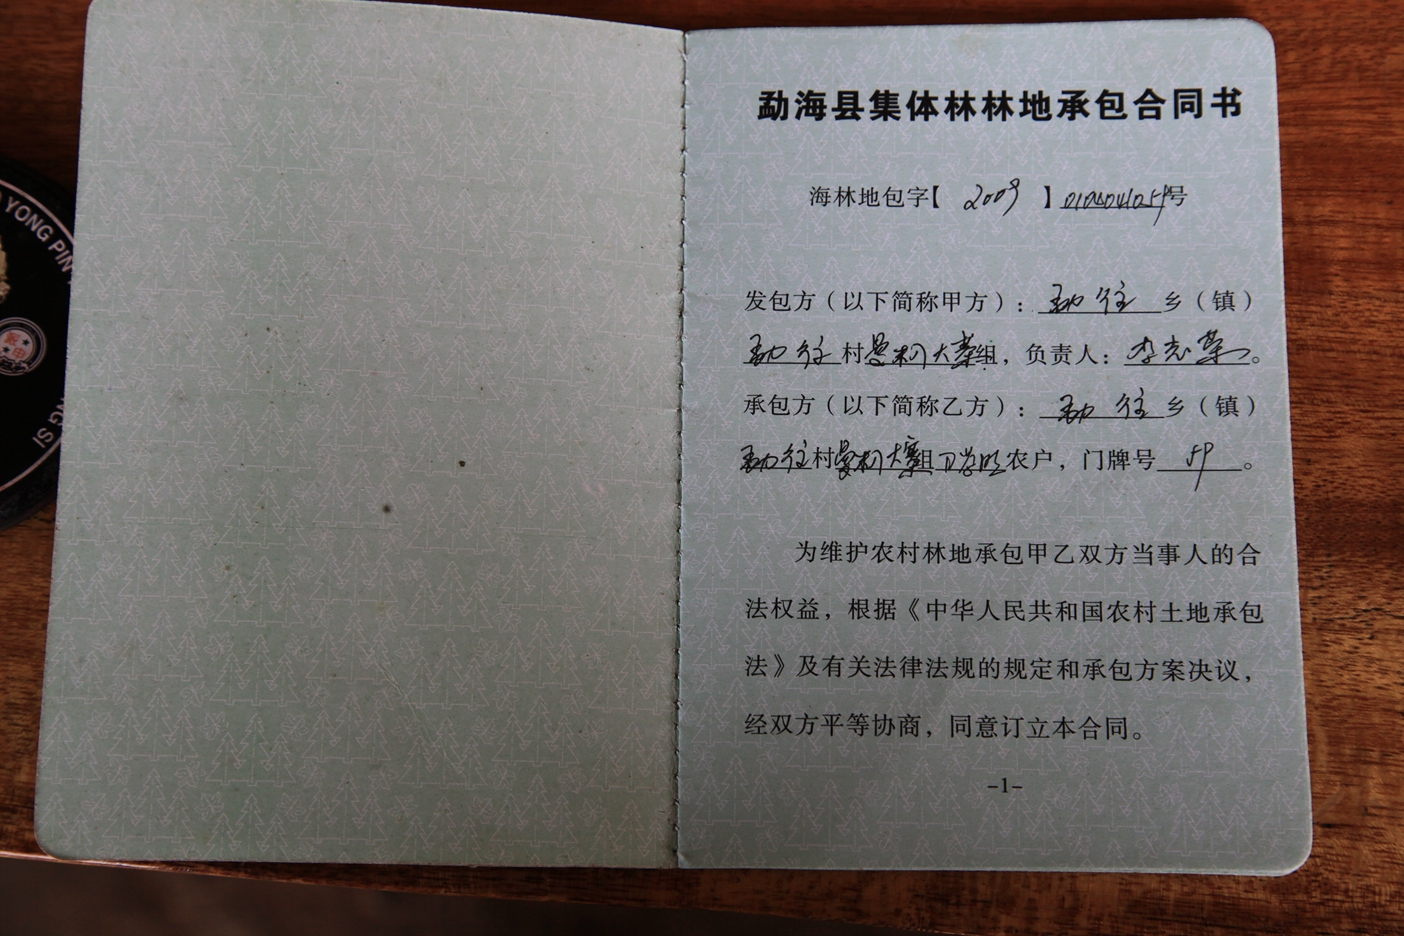 YONG PIN
SI
勐海县集体林林地承包合同书
海林地包字【 2009 】0104041059号
发包方（以下简称甲方）：勐往乡（镇）
勐往村曼糯大寨组，负责人：李志荣。
承包方（以下简称乙方）：勐往乡（镇）
勐往村曼糯大寨组 农户，门牌号59。
为维护农村林地承包甲乙双方当事人的合
法权益，根据《中华人民共和国农村土地承包
法》及有关法律法规的规定和承包方案决议，
经双方平等协商，同意订立本合同。
-1-